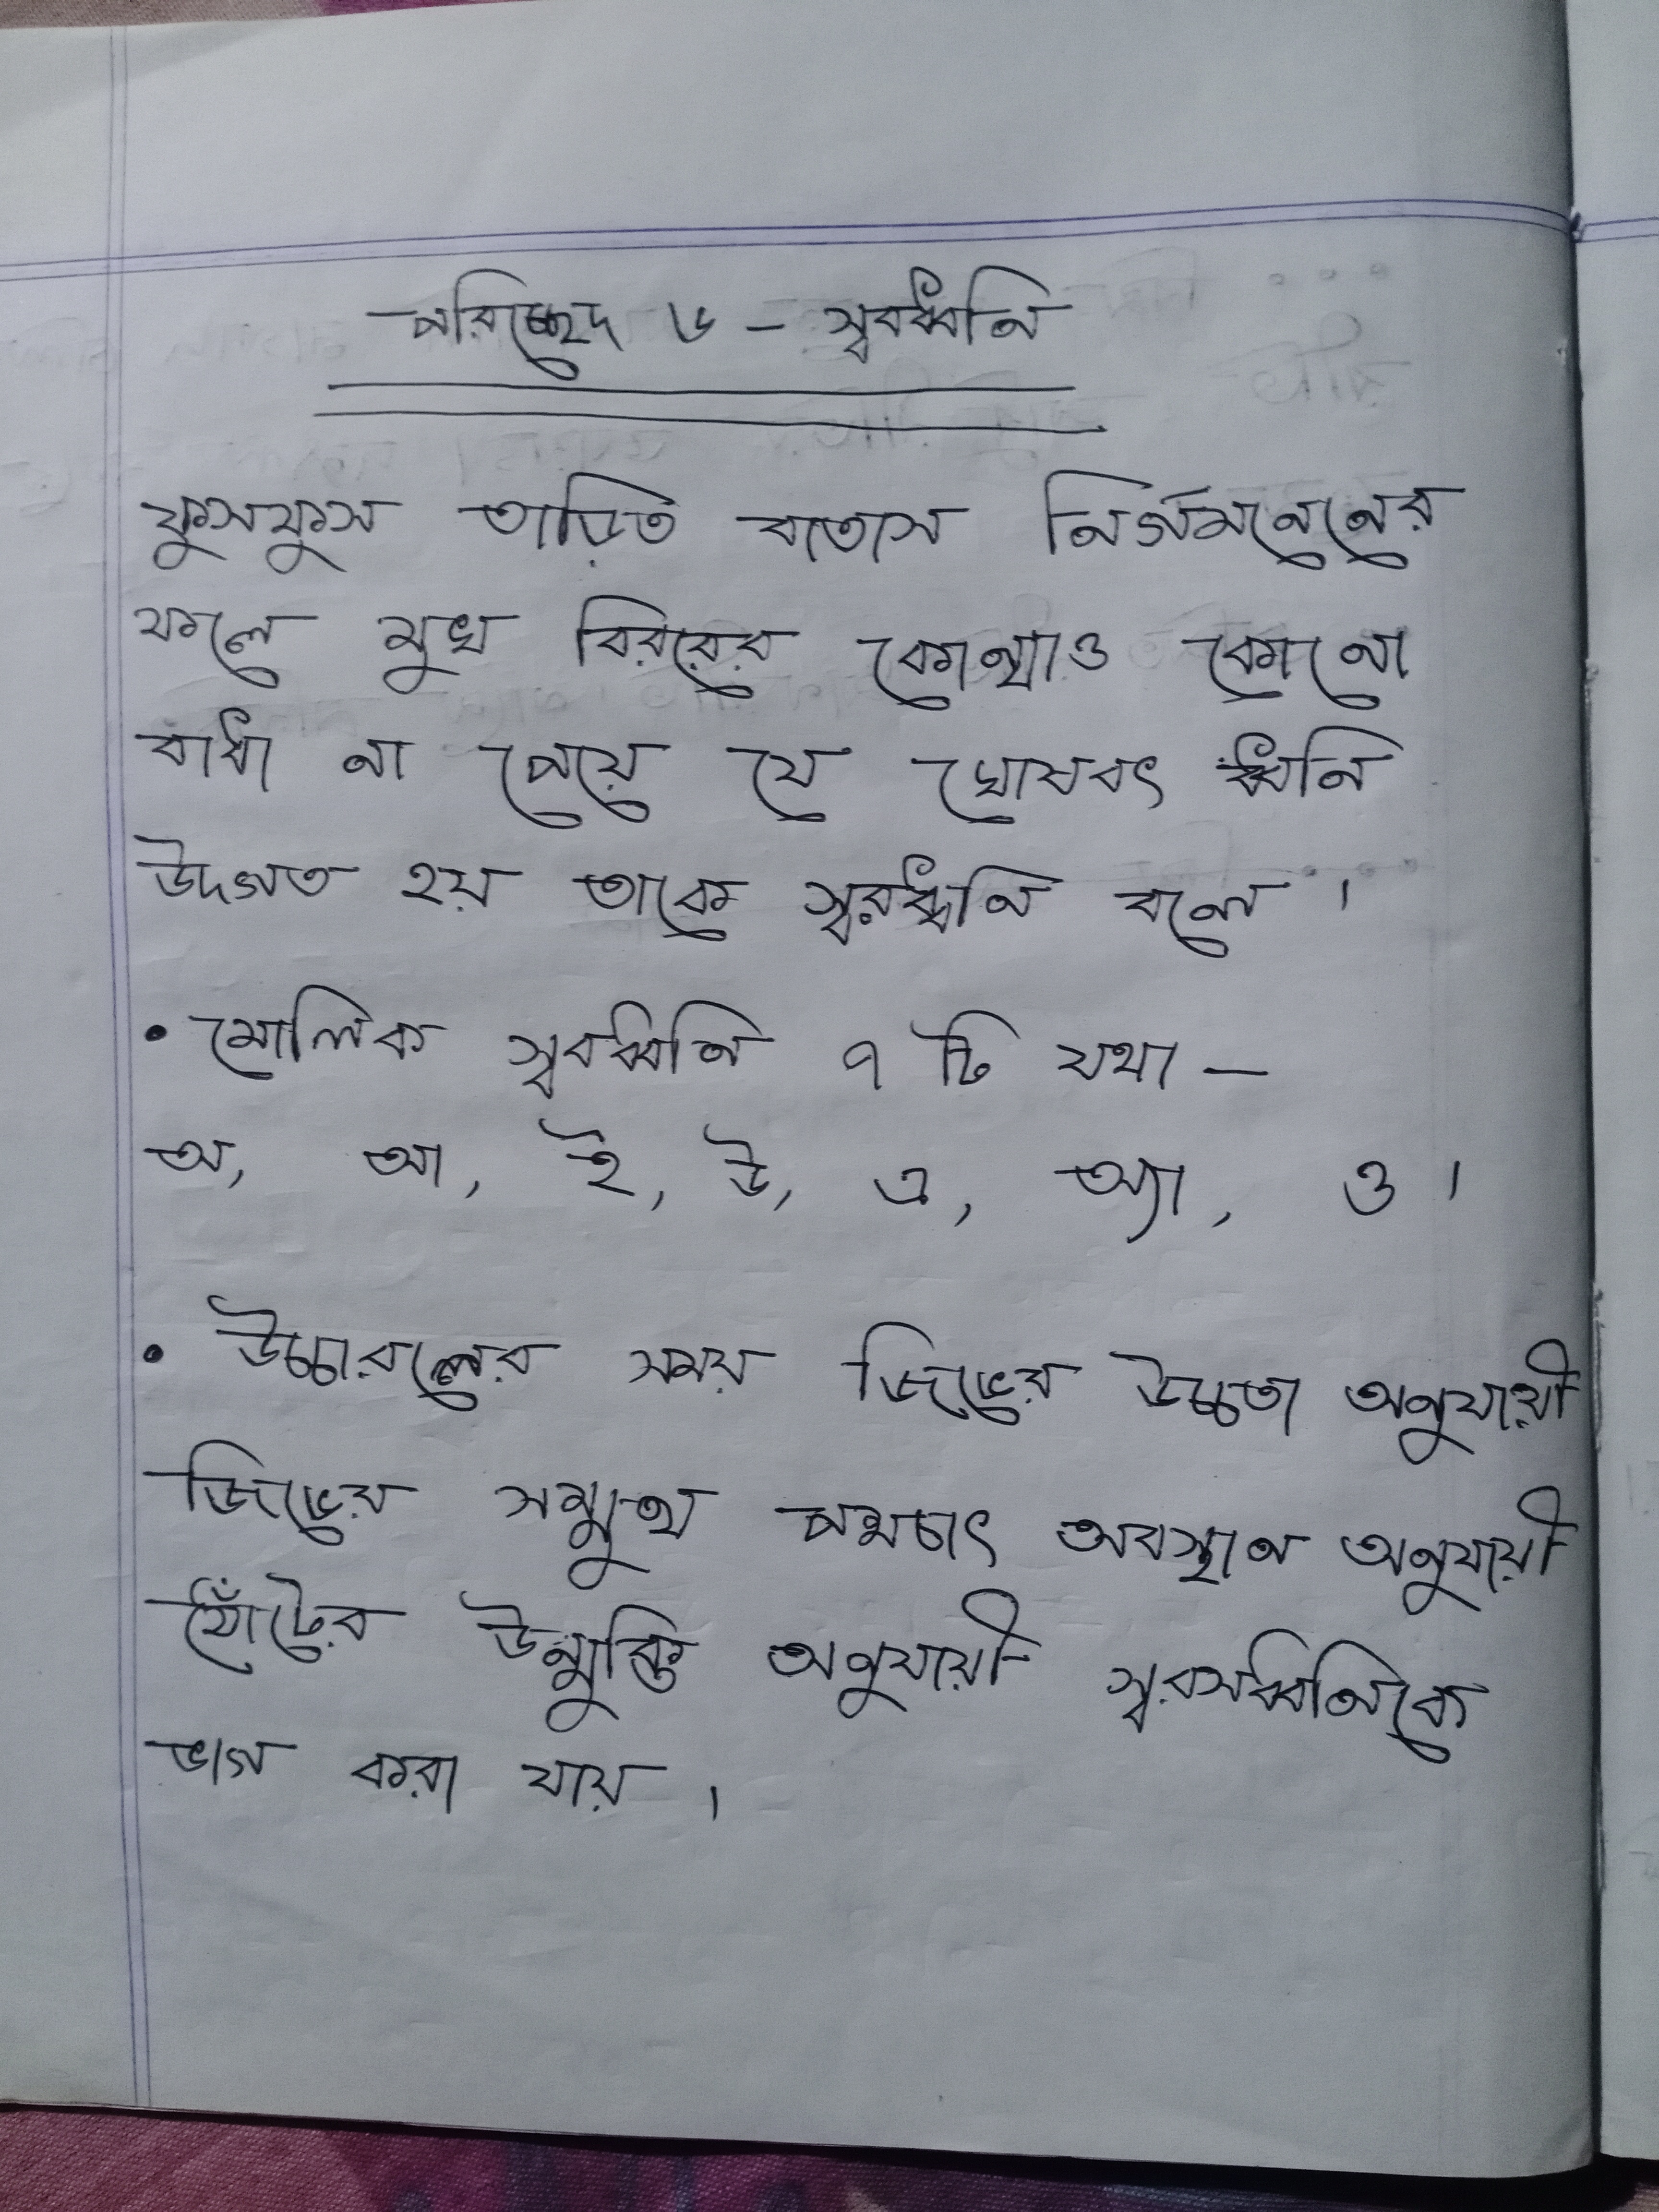 পরিচ্ছেদ ৬ - স্বরধ্বনি
ফুসফুস তাড়িত বাতাস নির্গমনেনের
ফলে মুখ বিবরের কোথাও কোনো
বাধা না পেয়ে যে ঘোষবৎ ধ্বনি
উদগত হয় তাকে স্বরধ্বনি বলে ।
• মৌলিক স্বরধ্বনি ৭ টি যথা —
অ, আ, ই, উ, এ, অ্যা, ও ।
• উচ্চারণের সময় জিভের উচ্চতা অনুযায়ী
জিভের সম্মুখ পশ্চাৎ অবস্থান অনুযায়ী
ঠোঁটের উন্মুক্তি অনুযায়ী
ভাগ করা যায় ।